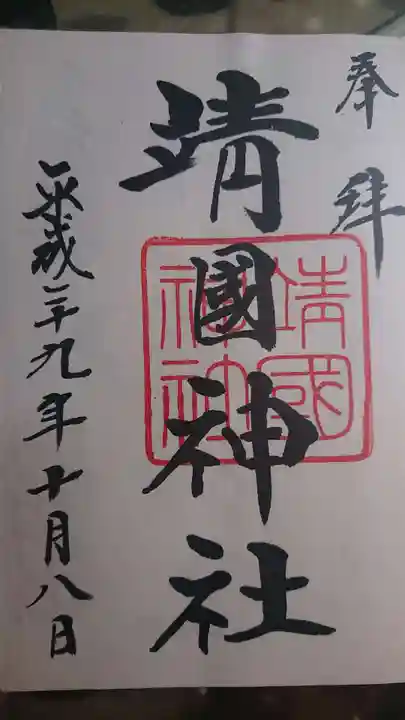 奉拝
靖國神社
靖國神社
平成二十九年十月八日